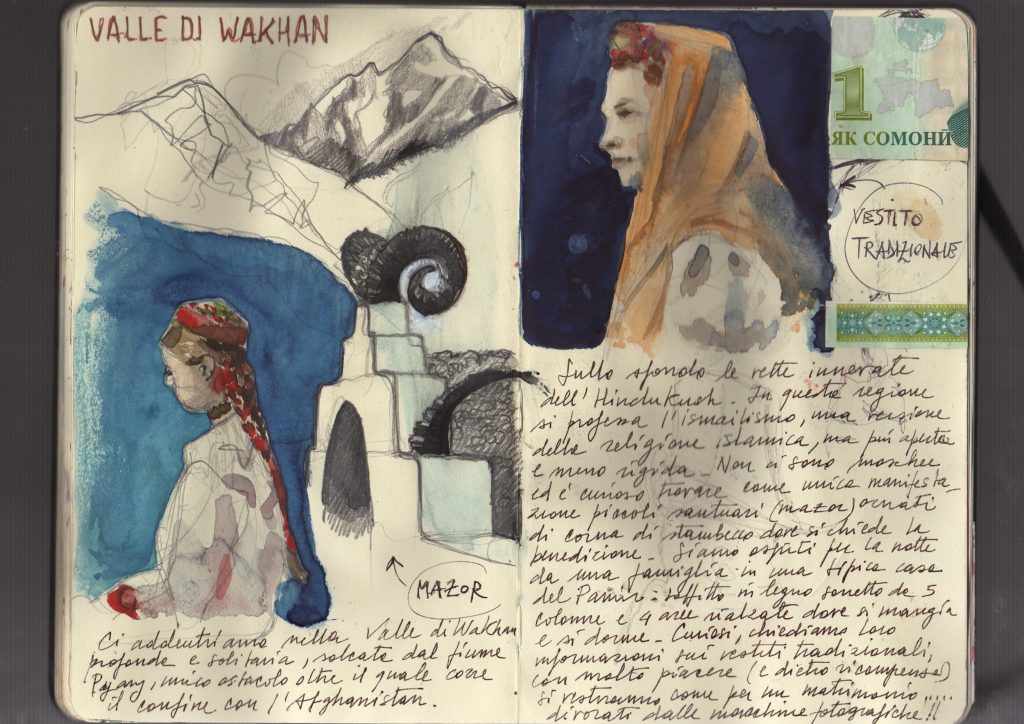 VALLE DI WAKHAN
MAZOR
Ci addentriamo nella Valle di Wakhan
profonda e solitaria, solcata dal fiume
Pyany, unico ostacolo oltre il quale corre
il confine con l'Afghanistan.
1
ЯК СОМОНӢ
VESTITO
TRADIZIONALE
Sullo sfondo le vette innevate
dell'HinduKush. In questa regione
si professa l'ismailismo, una versione
della religione islamica, ma più aperta
e meno rigida. Non ci sono moschee
ed è curioso trovare come unica manifesta-
zione piccoli santuari (mazor) ornati
di corna di stambecco dove si chiede la
benedizione. Siamo ospiti per la notte
da una famiglia in una tipica casa
del Pamir: soffitto in legno sorretto da 5
colonne e 4 aree rialzate dove si mangia
e si dorme. Curiosi, chiediamo loro
informazioni sui vestiti tradizionali,
con molto piacere (e dietro ricompensa)
si vestiranno come per un matrimonio.....
divorati dalle macchine fotografiche!!